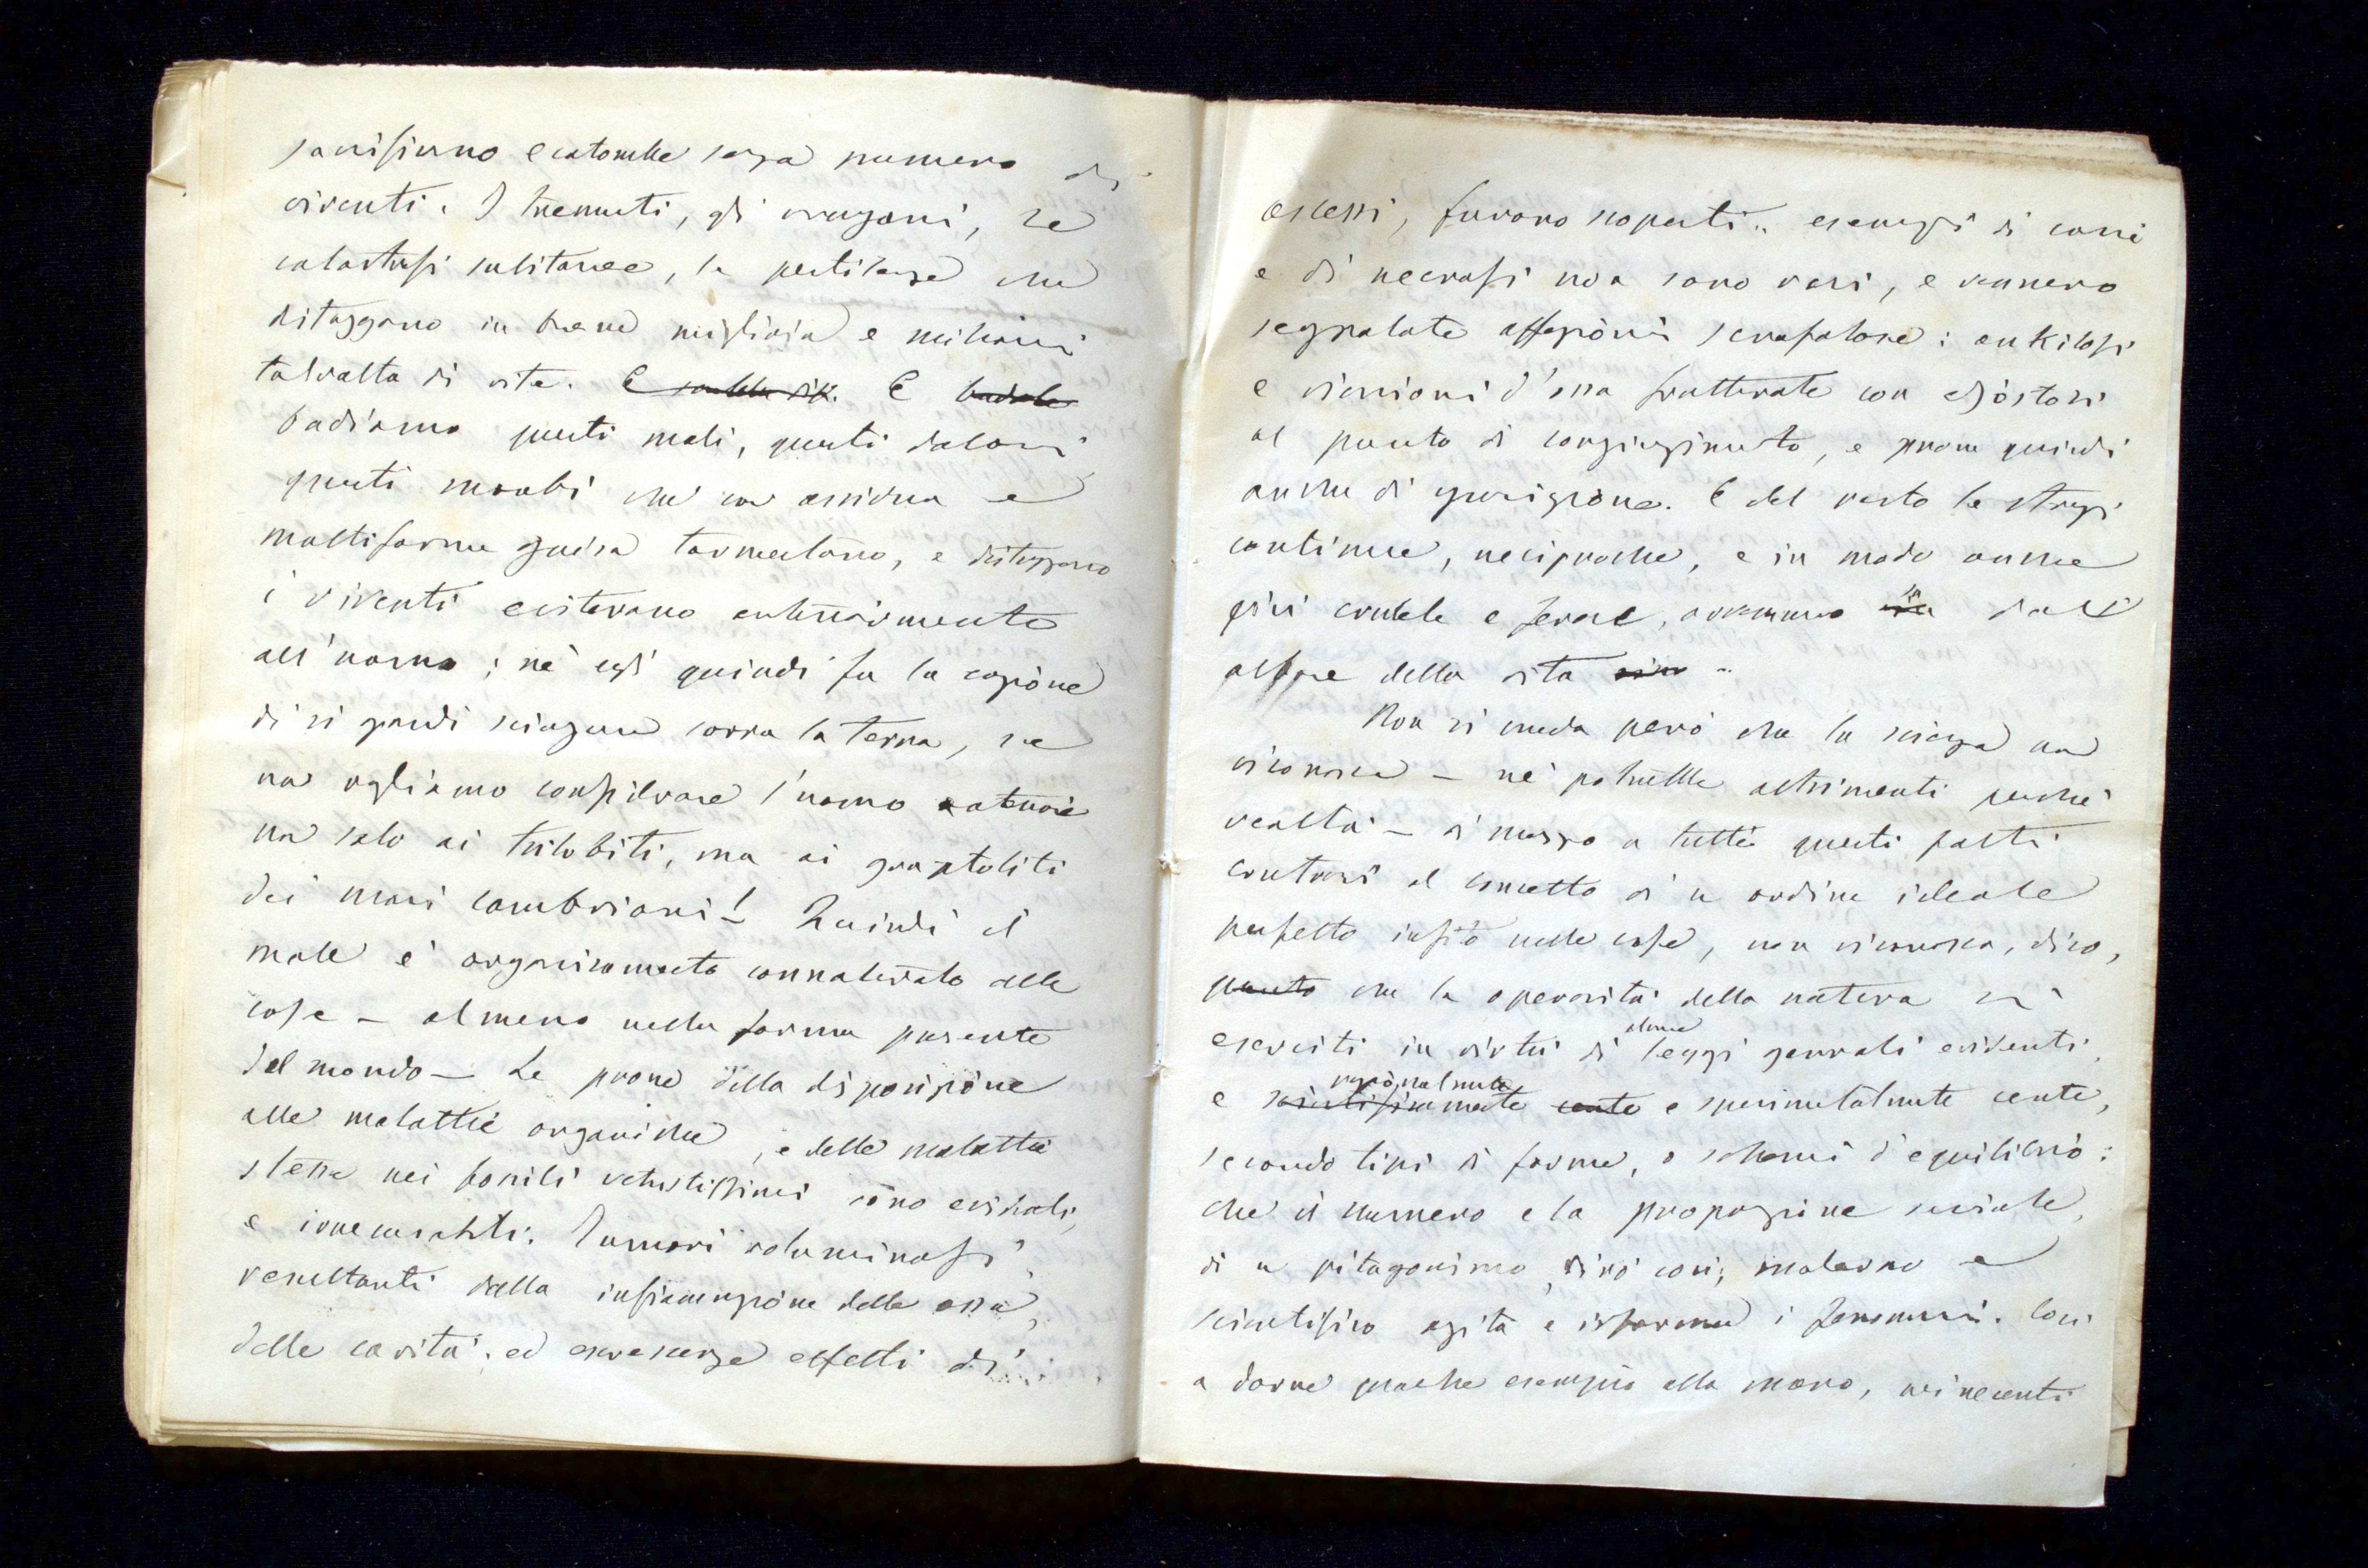 sacrificano ecatombe senza numero di
viventi. I tremuti, gli uragani, le
catastrofi subitanee, le pestilenze che
distruggono in breve migliaia e milioni
talvolta di vite. E E badate
badiamo questi mali, questi dolori
questi morbi che con assidua e
multiforme guisa tormentano, e distruggono
i viventi esistevano anteriormente
all'uomo; nè egli quindi fu la cagione
di si grandi sciagure sovra la terra, se
non vogliamo considerare l'uomo anteriore
non solo ai trilobiti, ma ai graptoliti
dei mari cambriani! Quindi il
male è organicamente connaturato alle
cose – almeno nella forma presente
del mondo – Le prove della disposizione
alle malattie organiche, e delle malattie
stesse nei fossili vetustissimi sono evidenti,
e irrecusabili. Tumori voluminosi
resultanti dalla infiammazione delle ossa,
delle cavità, ed escrescenze effetti di
ascessi, furono scoperti: esempi di carie
e di necrosi non sono rari, e vennero
segnalate affezioni scrofolose: ankilosi
e riunioni d'ossa fratturate con esostosi
al punto di congiungimento, e prove quindi
anche di guarigione. E del resto le stragi
continue, reciproche, e in modo anche
più crudele e feroce, avvennero sin dall'
albore della vita
Non si creda però che la scienza non
riconosca – nè potrebbe altrimenti perchè
realtà – in mezzo a tutti questi fatti
contrari al concetto di un ordine ideale
perfetto insito nelle cose, non riconosca, dico,
punto che la operosità della natura si
eserciti in virtù di alcune leggi generali evidenti,
e scientificamente razionalmente certe e sperimentalmente certe,
secondo tipi di forme, o schemi d'equilibrio:
che il numero e la proporzione
di un pitagorismo, dirò così, moderno e
scientifico agita e informa i fenomeni. Così
a darne qualche esempio alla mano, nei recenti